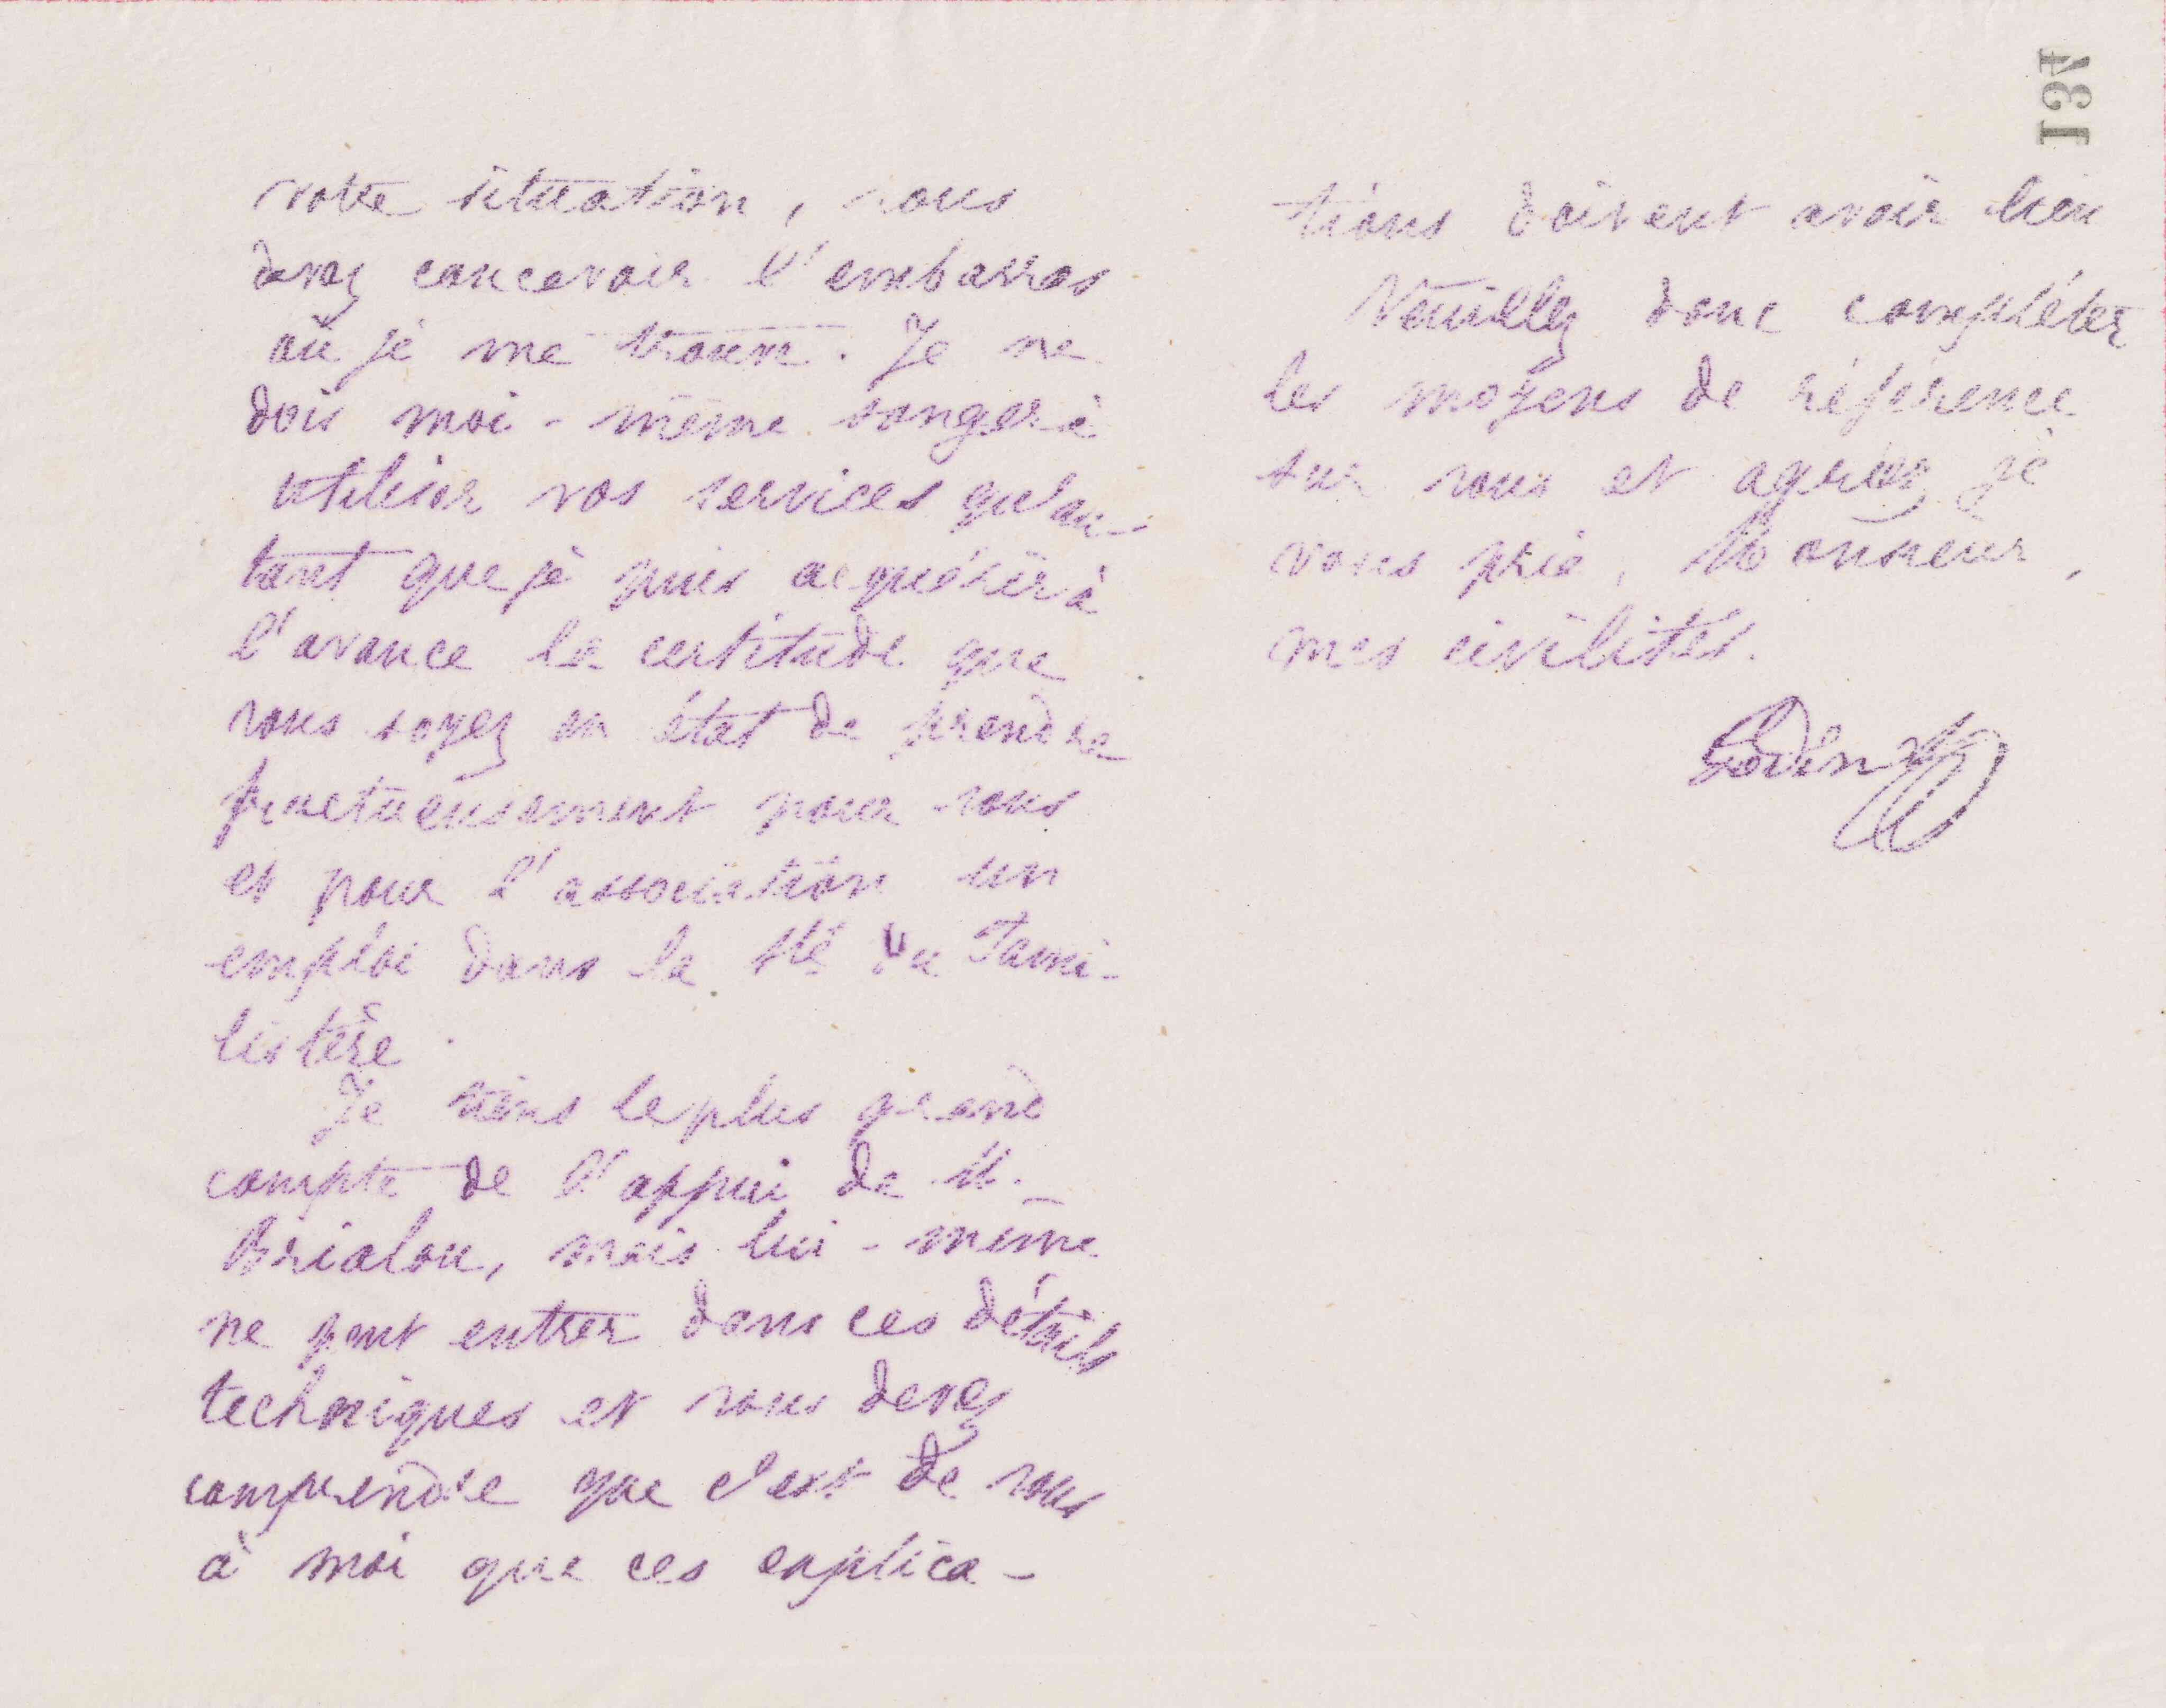 134
votre situation, vous
devez concevoir l'embarras
où je me trouve. Je ne
dois moi-même songer à
utiliser vos services qu'au-
tant que je puis acquérir à
l'avance la certitude que
vous soyez en état de prendre
fructueusement pour vous
et pour l'association un
emploi dans la Sté du Fami-
listère.
Je tiens le plus grand
compte de l'appui de M.
Brialou, mais lui-même
ne peut entrer dans ces détails
techniques et vous devez
comprendre que c'est de vous
à moi que ces explica-
tions doivent avoir lieu
Veuillez donc compléter
les moyens de référence
sur vous et agréer, je
vous prie, Monsieur,
mes civilités.
Godin